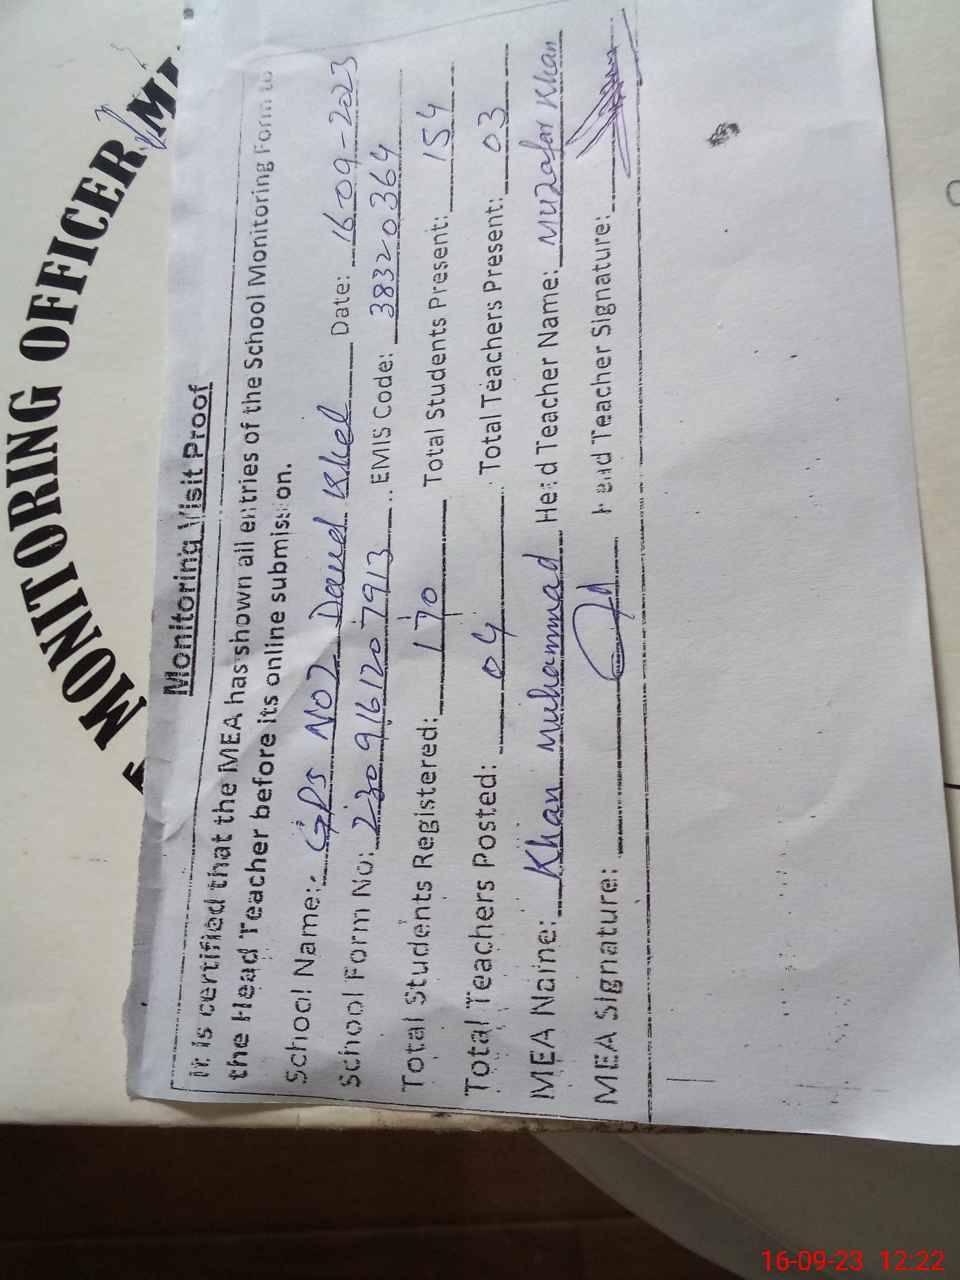 MONITORING OFFICER
Monitoring Visit Proof
It is certified that the MEA has shown all entries of the School Monitoring Form to
the Head Teacher before its online submission.
School Name: GPS NO2 Daud Khel Date: 16-09-2023
School Form No: 2309161207913 EMIS Code: 38320364
Total Students Registered: 170 Total Students Present: 154
Total Teachers Posted: 04 Total Teachers Present: 03
MEA Name: Khan Muhammad Head Teacher Name: Muzafar Khan
MEA Signature: Head Teacher Signature:
16-09-23 12:22